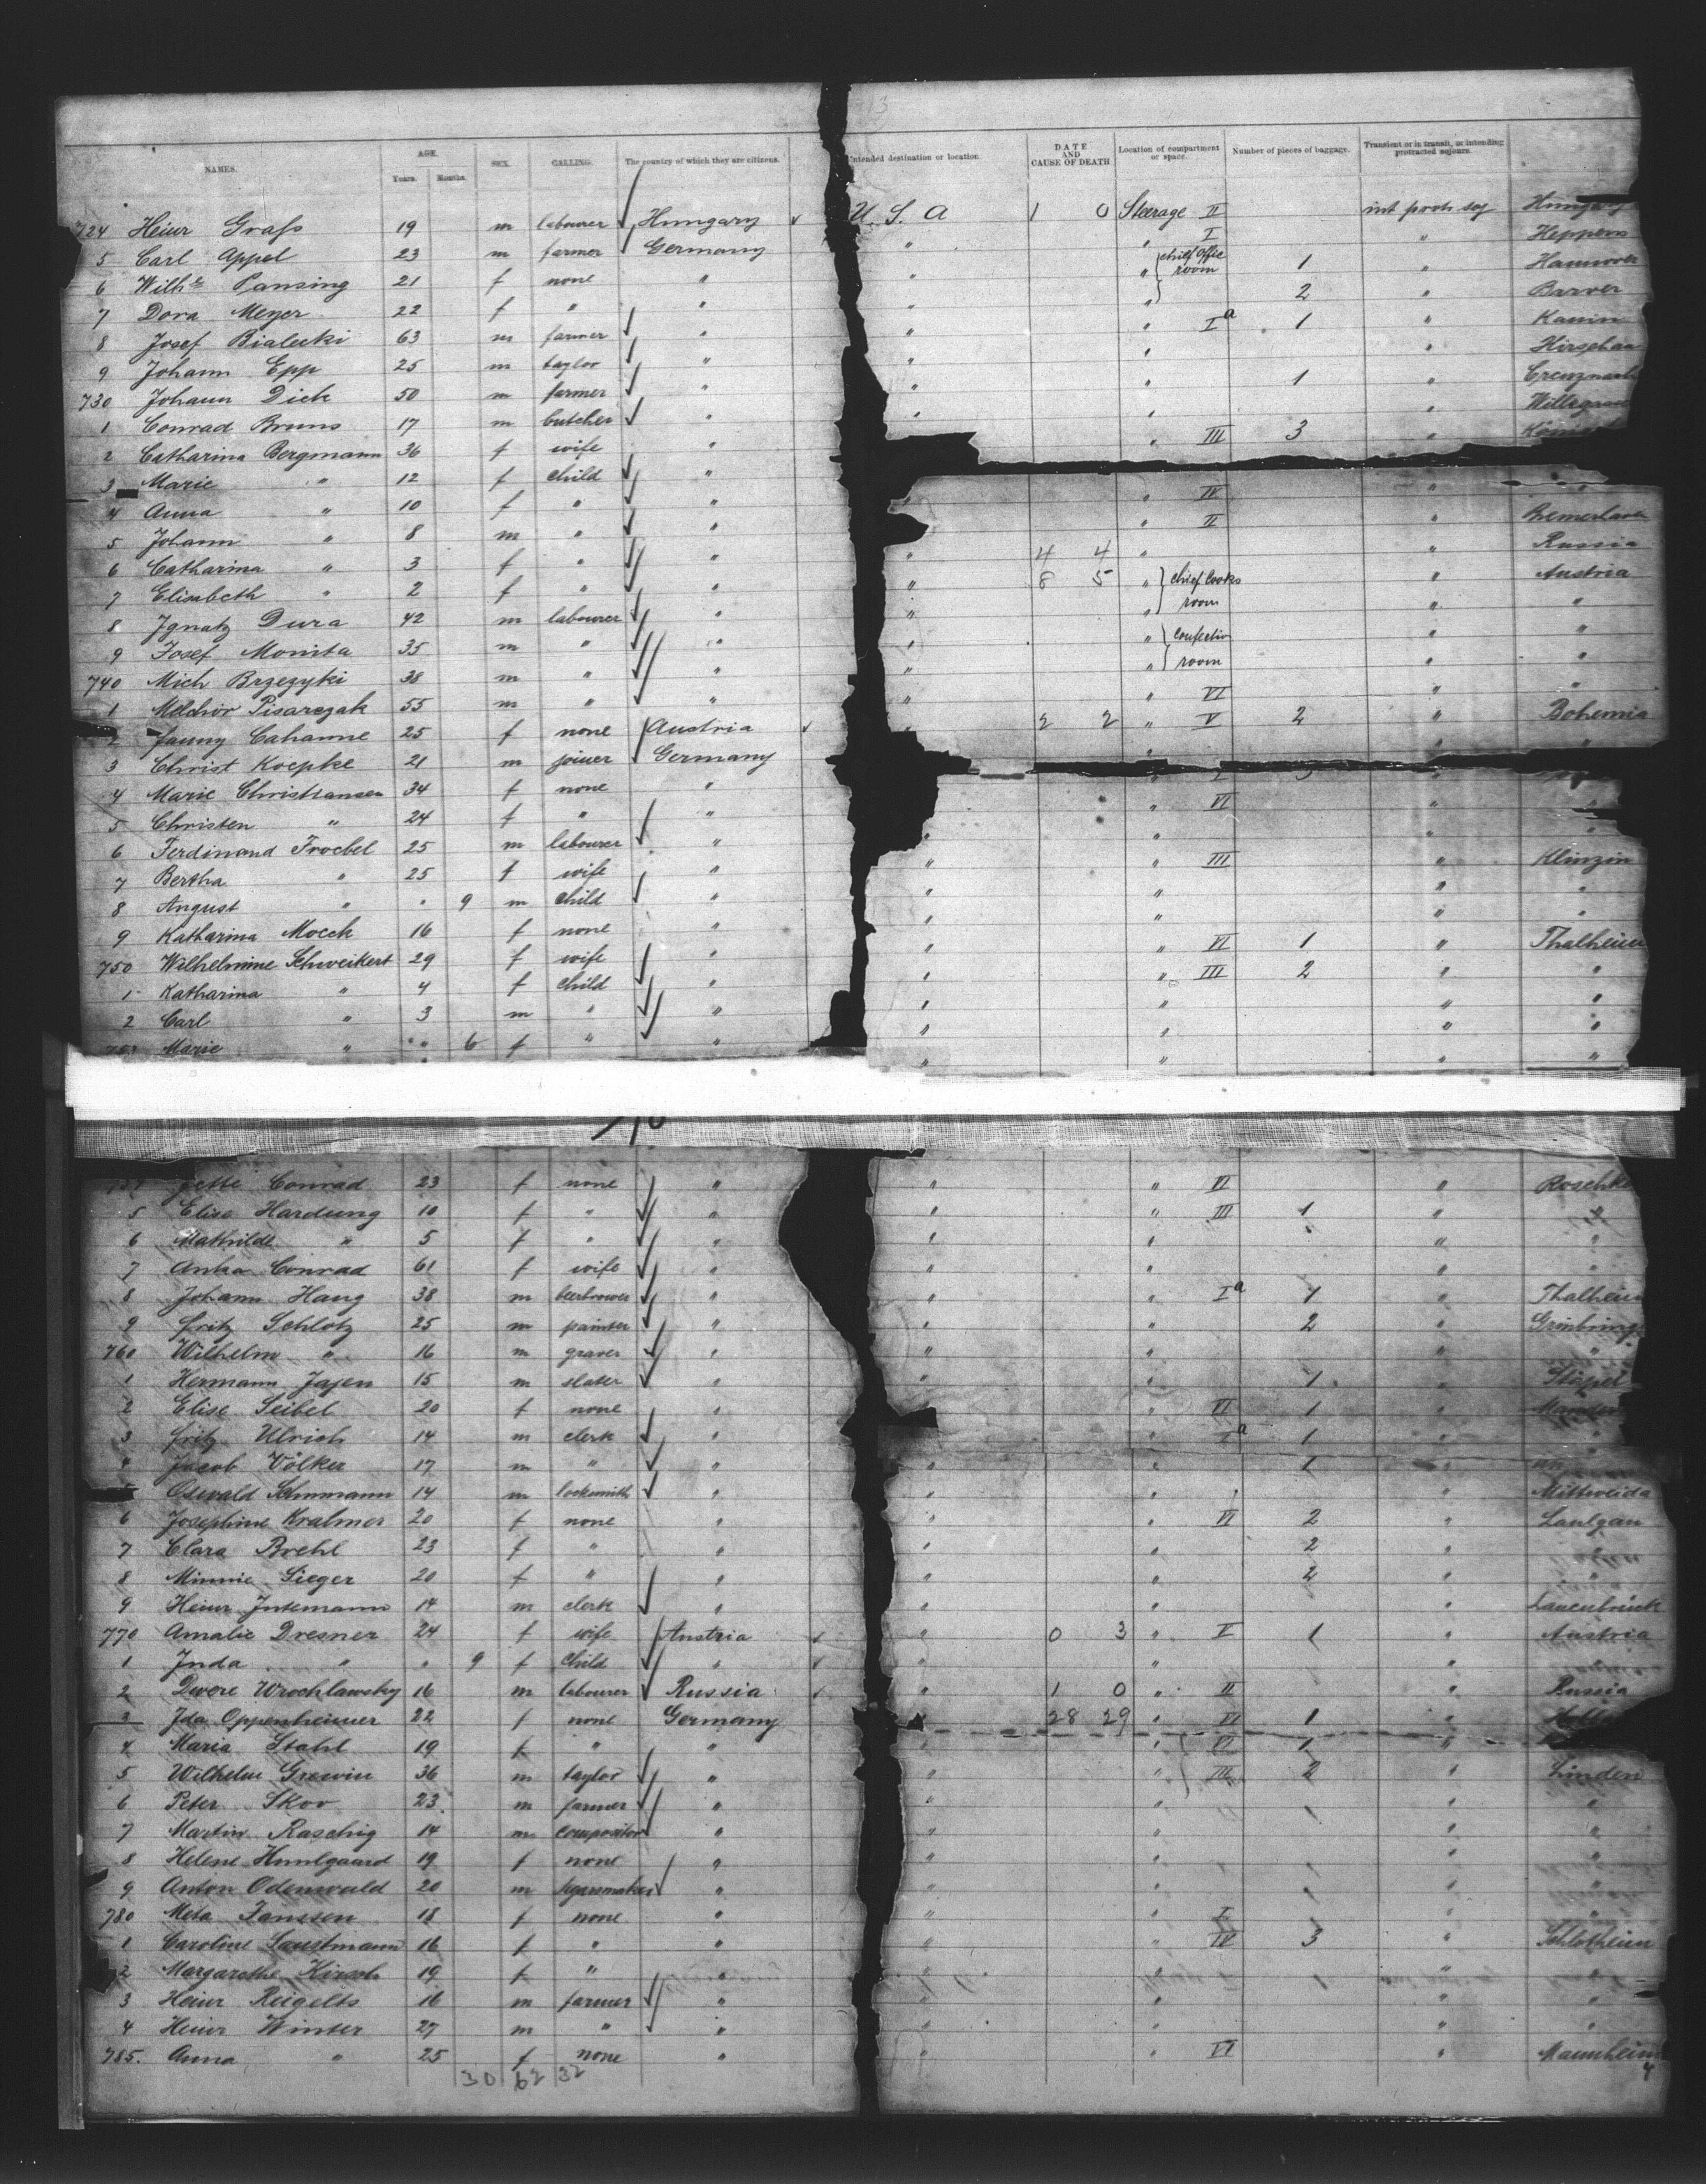 13
NAMES. AGE. SEX. CALLING. The country of which they are citizens. Intended destination or location. DATE AND CAUSE OF DEATH Location of compartment or space. Number of pieces of baggage. Transient or in transit, or intending protracted sojourn.
Years. Months.
724 Heinr Grafs 19 m labourer Hungary U. S. A 1 0 Steerage II int protr soj
5 Carl Appel 23 m farmer Germany " " I " Heppens
6 Wilhe Pansing 21 f none " " " chief Offic room 1 " Hannover
7 Dora Meyer 22 f " " " 2 " Barver
8 Josef Bialecki 63 m farmer " " " Ia 1 "
9 Johann Epp 25 m taylor " " " "
730 Johann Dick 50 m farmer " " " 1 "
1 Conrad Bruns 17 m butcher " " " "
2 Catharina Bergmann 36 f wife " " III 3 "
3 Marie " 12 f child "
4 Anna " 10 f " " " " IV " "
5 Johann " 8 m " " " II "
6 Catharina " 3 f " " " 4 4 " " Russia
7 Elisabeth " 2 f " " " 8 5 " chief Cooks " Austria
8 Ignatz Dura 42 m labourer " " " room " "
9 Josef Monita 35 m " " " " " "
740 Mich Brzezyki 38 m " " " " room " "
1 Melchior Pisarczak 55 m " " " " VI " "
2 Fanny Cahanne 25 f none Austria " 2 2 " V 2 " Bohemia
3 Christ Koepke 21 m joiner Germany
4 Marie Christiansen 34 f none "
5 Christen " 24 f " " " VI "
6 Ferdinand Froebel 25 m labourer " " " "
7 Bertha " 25 f wife " " " III " Klinzin
8 August " " 9 m child " " " " "
9 Katharina Mocck 16 f none " " " " "
750 Wilhelmine Schweikert 29 f wife " " " VI 1 " Thalheim
1 Katharina " 4 f child " " " III 2 " "
2 Carl " 3 m " " " " " "
Marie " " 6 f " " " " " "
" " " "
Conrad 23 f none " " " VI "
5 Elise Hardung 10 f " " " " III 1 " "
6 Mathilde " 5 f " " " " " "
7 Anna Conrad 61 f wife " " " " "
8 Johann Haug 38 m beerbrower " " " Ia 1 " Thalheim
9 Fritz Schlotz 25 m painter " " " 2 "
760 Wilhelm " 16 m graver " " " " "
1 Hermann Jajen 15 m slater " " " 1 "
2 Elise Seibel 20 f none " " " VI 1 "
3 Fritz Ulrich 14 m clerk " " " Ia 1 "
4 Jacob Völker 17 m " " " " 1 "
Oswald 14 m locksmith " " " " Mittweida
6 Josephine Kralmer 20 f none " " " VI 2 "
7 Clara Brehl 23 f " " " " 2 " "
8 Minnie Sieger 20 f " " " " 2 " "
9 Heinr Intemann 14 m clerk " " " " Lauenbrück
770 Amalie Dresner 24 f wife Austria " 0 3 " V 1 " Austria
1 Inda " " 9 f child " " " " "
2 Dwore Wrochlawsky 16 m labourer Russia " 1 0 " II " Russia
3 Ida Oppenheimer 22 f none Germany " 28 29 " VI 1 "
4 Maria Stahl 19 f " " " " VI 1 "
5 Wilhelm Grewin 36 m taylor " " " III 2 " Linden
6 Peter Skov 23 m farmer " " " " "
7 Martin Raschig 14 m compositor " " " " "
8 Helene Humlgaard 19 f none " " " " "
9 Anton Odenwald 20 m " " " " "
780 Meta Janssen 18 f none " " " I " "
1 Caroline Saustmann 16 f " " " " IV 3 " Schlotheim
2 Margarethe Kirsch 19 f " " " " " "
3 Heinr Reigelts 16 m farmer " " " " "
4 Heinr Winter 27 m " " " " " "
785. Anna " 25 f none " " " VI " Mannheim
30 62 32 4